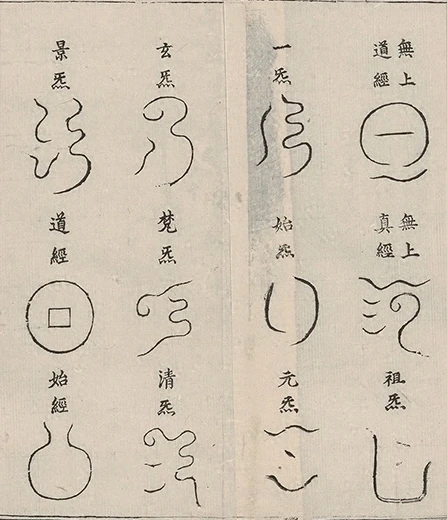 無上道經
無上真經
祖炁
一炁
始炁
元炁
玄炁
梵炁
清炁
景炁
道經
始經